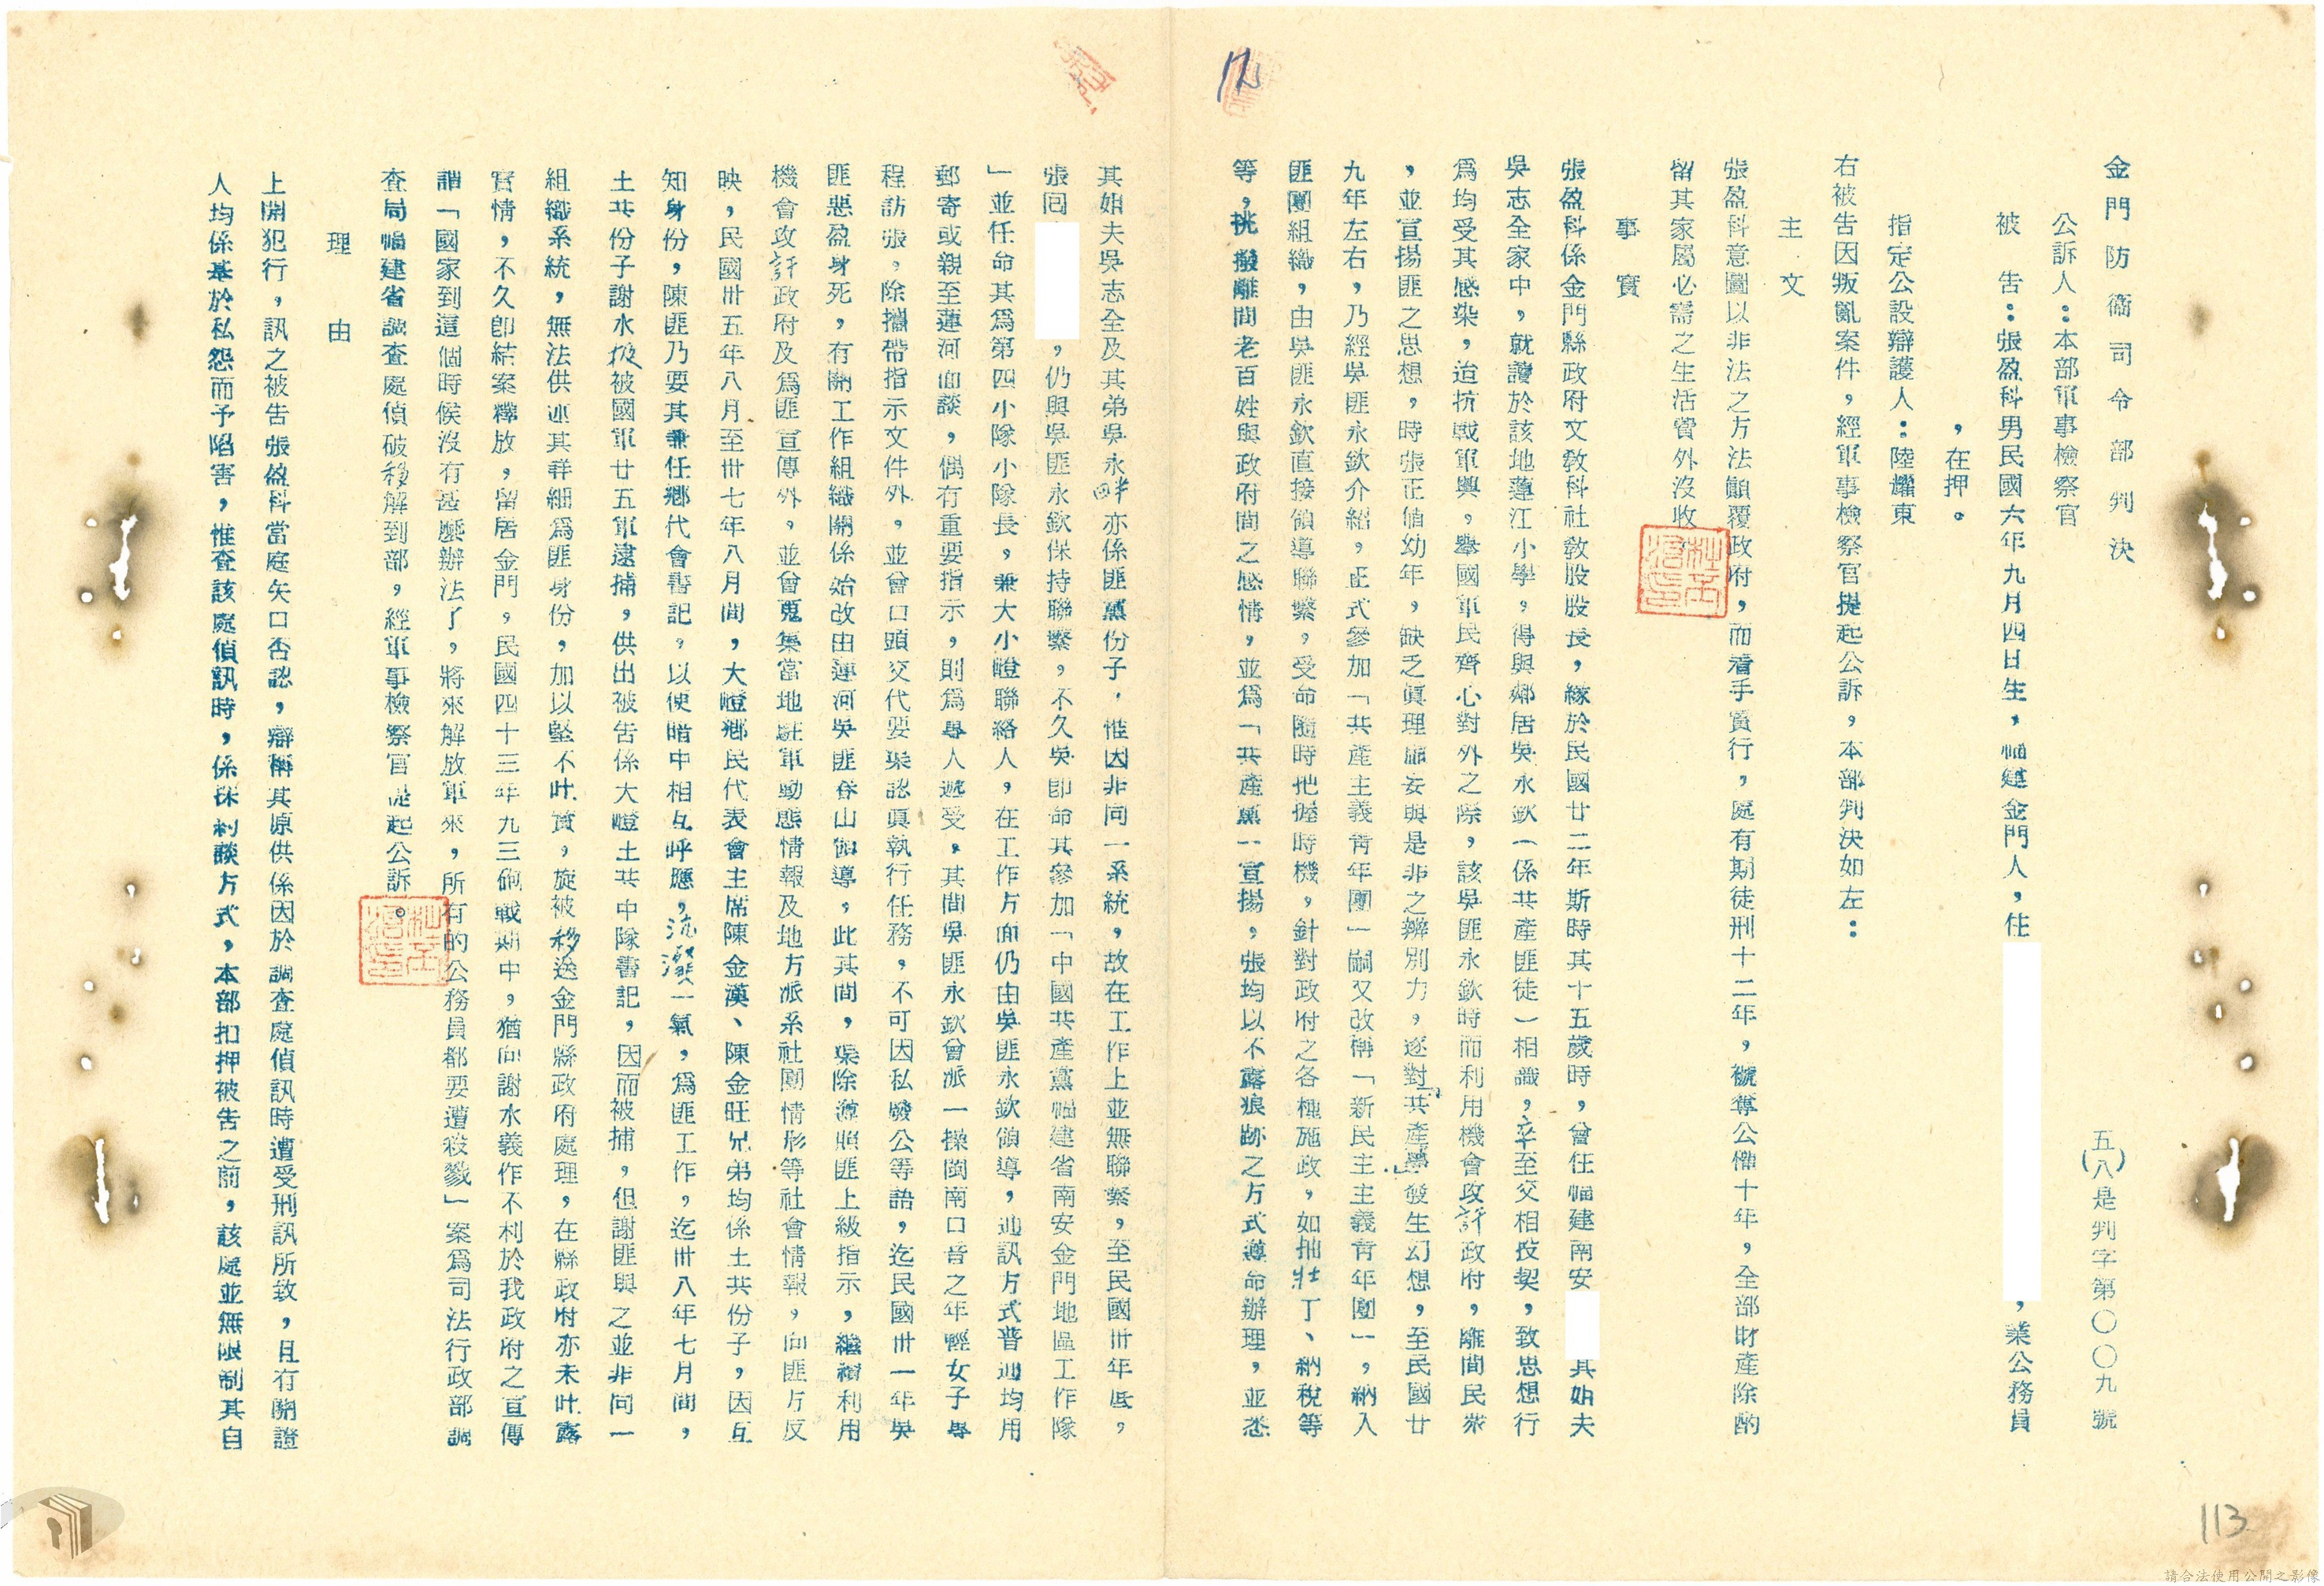 金門防衛司令部判決
(五八)是判字第〇〇九號
公訴人：本部軍事檢察官
被告：張盈科男民國六年九月四日生，福建金門人，住
，業公務員
，在押。
指定公設辯護人：陸耀東
右被告因叛亂案件，經軍事檢察官提起公訴，本部判決如左：
主文
張盈科意圖以非法之方法顛覆政府，而着手實行，處有期徒刑十二年，褫奪公權十年，全部財產除酌
留其家屬必需之生活費外沒收。
事實
張盈科係金門縣政府文教科社教股股長，緣於民國廿二年斯時其十五歲時，曾任福建南安
其姐夫
吳志全家中，就讀於該地蓮江小學，得與鄰居吳永欽（係共產匪徒）相識，卒至交相投契，致思想行
為均受其感染，迨抗戰軍興，舉國軍民齊心對外之際，該吳匪永欽時而利用機會攻訐政府，離間民衆
，並宣揚匪之思想，時張正值幼年，缺乏眞理虛妄與是非之辨別力，逐對「共產黨」發生幻想，至民國廿
九年左右，乃經吳匪永欽介紹，正式參加「共產主義青年團」嗣又改稱「新民主主義青年團」，納入
匪團組織，由吳匪永欽直接領導聯繫，受命隨時把握時機，針對政府之各種施政，如抽壯丁、納稅等
等，挑撥離間老百姓與政府間之感情，並為「共產黨」宣揚，張均以不露痕跡之方式遵命辦理，並悉
其姐夫吳志全及其弟吳永畔亦係匪黨份子，惟因非同一系統，故在工作上並無聯繫，至民國卅年底，
張囘
，仍與吳匪永欽保持聯繫，不久吳卽命其參加「中國共產黨福建省南安金門地區工作隊
」並任命其為第四小隊小隊長，兼大小嶝聯絡人，在工作方面仍由吳匪永欽領導，通訊方式普通均用
郵寄或親至蓮河面談，偶有重要指示，則為專人遞受，其間吳匪永欽曾派一操閩南口音之年輕女子專
程訪張，除攜帶指示文件外，並曾口頭交代要渠認眞執行任務，不可因私廢公等語，迄民國卅一年吳
匪惡盈身死，有關工作組織關係始改由蓮河吳匪春山領導，此其間，渠除遵照匪上級指示，繼續利用
機會攻訐政府及為匪宣傳外，並曾蒐集當地駐軍動態情報及地方派系社團情形等社會情報，向匪方反
映，民國卅五年八月至卅七年八月間，大嶝鄉民代表會主席陳金漢、陳金旺兄弟均係土共份子，因互
知身份，陳匪乃要其兼任鄉代會書記，以便暗中相互呼應，沆瀣一氣，為匪工作，迄卅八年七月間，
土共份子謝水拔被國軍廿五軍逮捕，供出被告係大嶝土共中隊書記，因而被捕，但謝匪與之並非同一
組織系統，無法供述其詳細為匪身份，加以堅不吐實，旋被移送金門縣政府處理，在縣政府亦未吐露
實情，不久卽結案釋放，留居金門，民國四十三年九三砲戰期中，猶向謝水義作不利於我政府之宣傳
謂「國家到這個時候沒有甚麼辦法了，將來解放軍來，所有的公務員都要遭殺戮」案為司法行政部調
查局福建省調查處偵破移解到部，經軍事檢察官提起公訴。
理由
上開犯行，訊之被告張盈科當庭矢口否認，辯稱其原供係因於調查處偵訊時遭受刑訊所致，且有關證
人均係基於私怨而予陷害，惟查該處偵訊時，係採和談方式，本部扣押被告之前，該處並無限制其自
12
113
請合法使用公開之影像